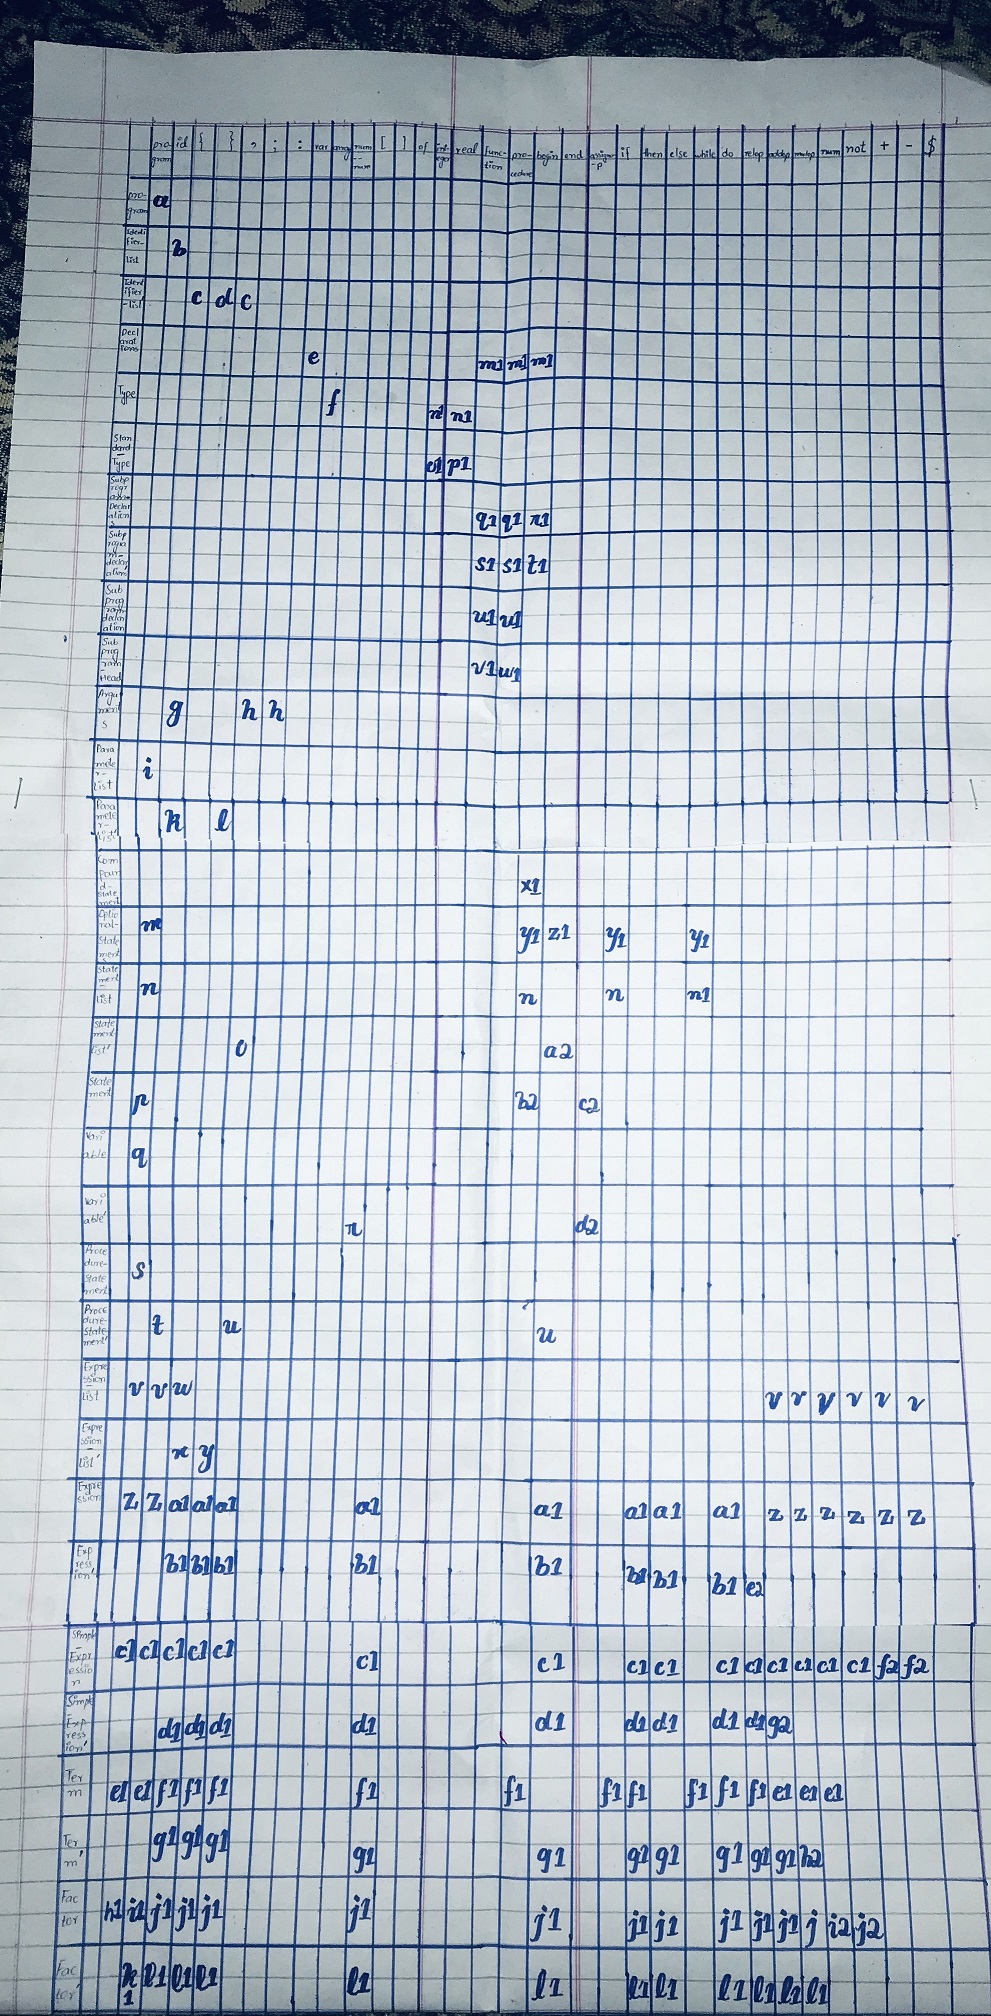 program id { } , ; : var array num--num [ ] of integer real function procedure begin end assignop if then else while do relop addop mulop num not + - $
program a
Identifier-list b
Identifier-list' c d c
Declarations e m1 m1 m1
Type f n1 n1
Standard-Type o1 p1
Subprogram-Declarations q1 q1 r1
Subprogram-declarations' s1 s1 t1
Subprogram-declaration u1 u1
Subprogram-Head v1 w1
Arguments g h h
Parameter-list i
Parameter-list' k l
Compound-statement x1
Optional-Statements m y1 z1 y1 y1
Statement-list n n n n1
Statement-list' o a2
Statement p b2 c2
Variable q
Variable' r d2
Procedure-statement s
Procedure-statement' t u u
Expression-list v v w v v v v v v
Expression-list' x y
Expression z z a1 a1 a1 a1 a1 a1 a1 a1 z z z z z z
Expression' b1 b1 b1 b1 b1 b1 b1 b1 e2
Simple-Expression c1 c1 c1 c1 c1 c1 c1 c1 c1 c1 c1 c1 c1 c1 c1 f2 f2
Simple-Expression' d1 d1 d1 d1 d1 d1 d1 d1 d1 g2
Term e1 e1 f1 f1 f1 f1 f1 f1 f1 f1 f1 f1 e1 e1 e1
Term' g1 g1 g1 g1 g1 g1 g1 g1 g1 g1 h2
Factor h1 i1 j1 j1 j1 j1 j1 j1 j1 j1 j1 j1 j i2 j2
Factor' k1 l1 l1 l1 l1 l1 l1 l1 l1 l1 l1 l1